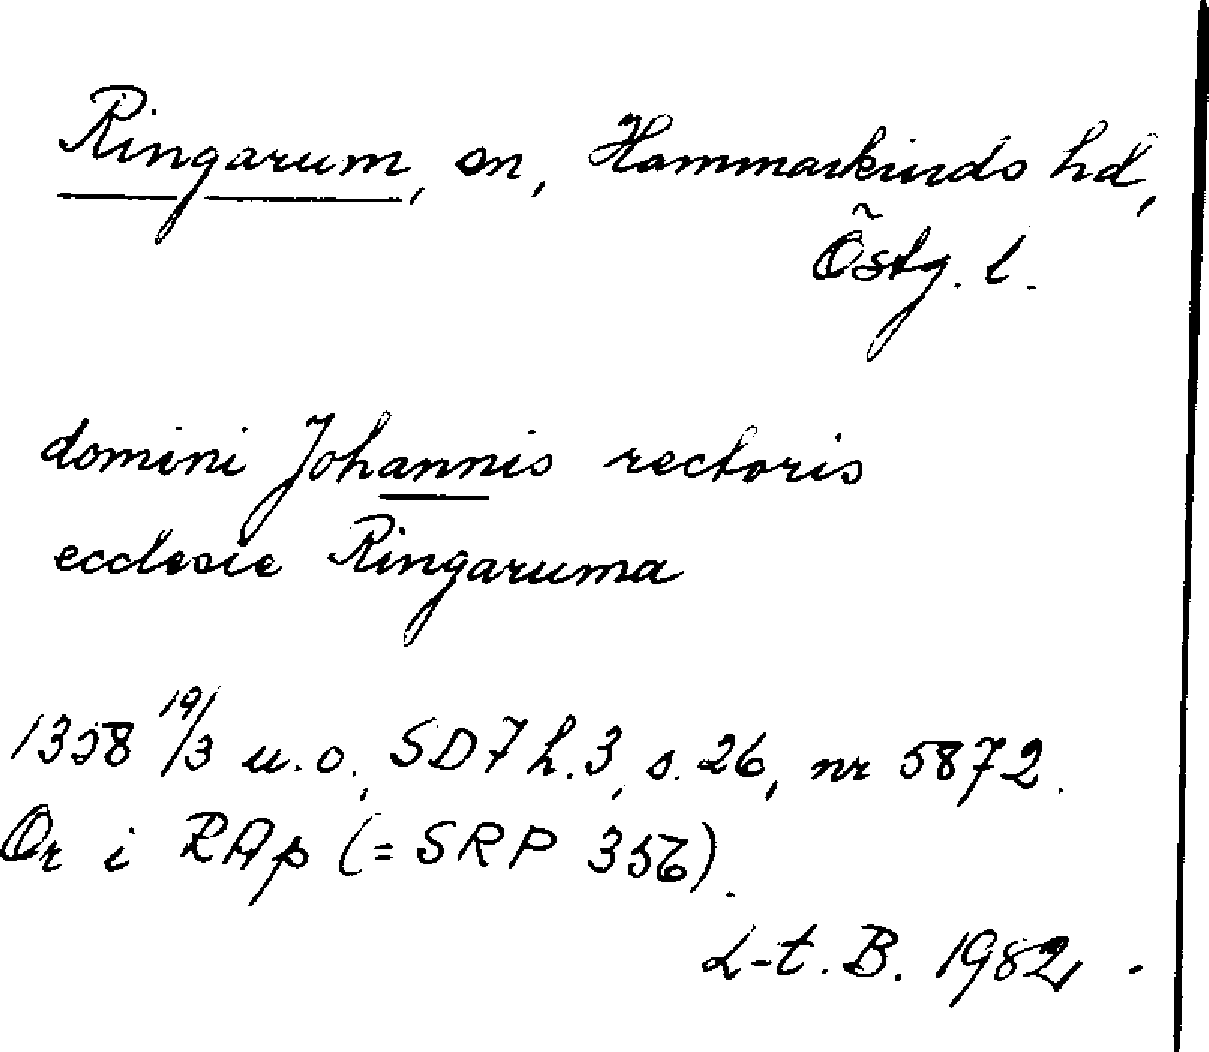 Ringarum, sn, Hammarkinds hd,
Östg. l.
domini Johannis rectoris
ecclesie Ringaruma
1358 19/3 u.o., SD7 h.3, s. 26, nr 5872.
Or i RAp (= SRP 356).
L-t. B. 1982.